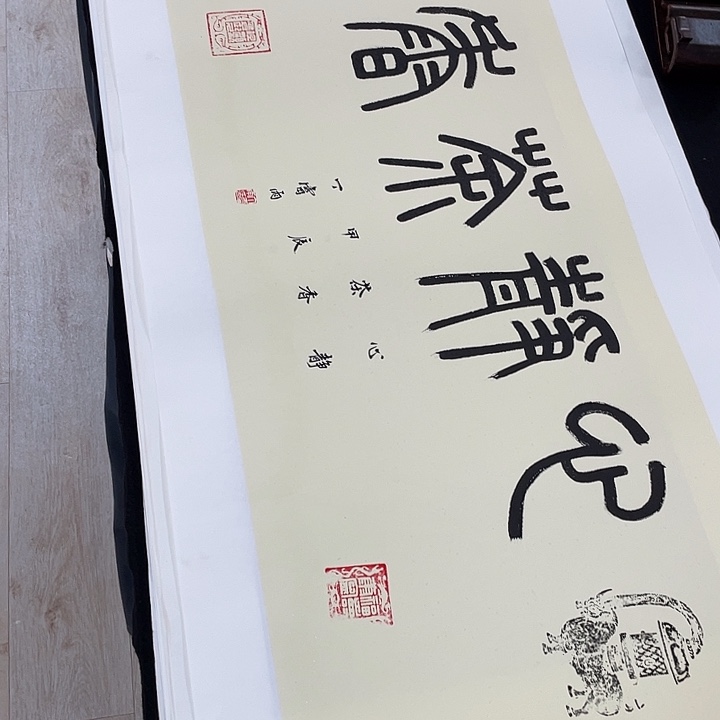 心靜茶香
心靜
茶香
甲辰
丁雨